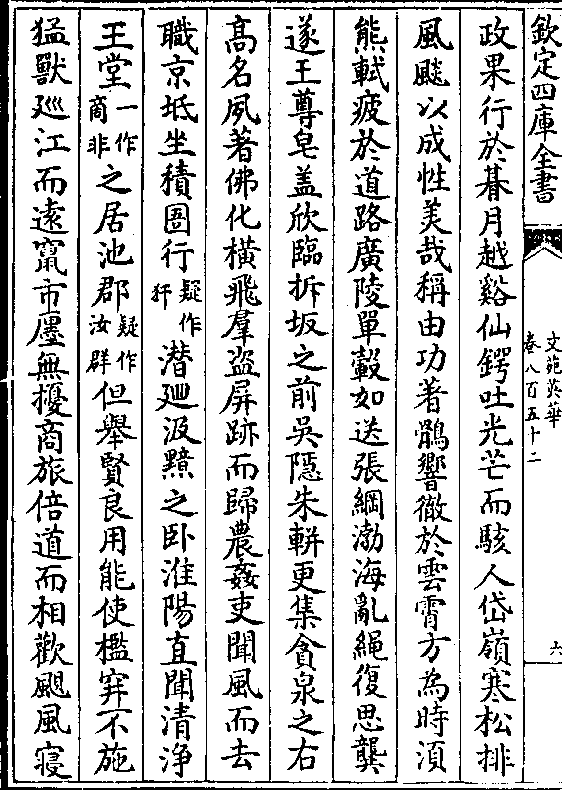 欽定四庫全書
文苑英華
卷八百五十二
六
政果行於暮月越谿仙鍔吐光芒而駭人岱嶺寒松排
風飈以成性美哉稱由功著鶺響徹於雲霄方為時湏
熊軾疲於道路廣陵單轂如送張綱渤海亂䋲復思龔
遂王尊皂盖欣臨拆坂之前吳隠朱軿更集貪泉之右
髙名夙著佛化横飛羣盗屏跡而歸農姦吏聞風而去
職京坻坐積圄行疑作犴潛廻汲黯之卧淮陽直聞清浄
王堂一作商非之居池郡疑作汝群但舉賢良用能使檻穽不施
猛獸廵江而逺竄市廛無擾商旅倍道而相歡颶風寝